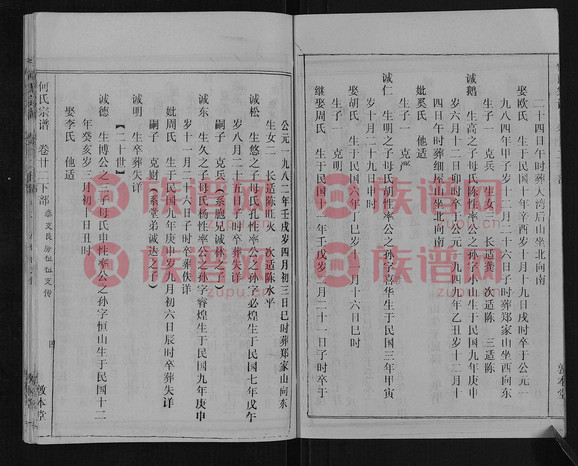 二十四日午时葬大湾后山坐北向南
娶欧氏 生于民国十年辛酉岁十月十七日子时卒于公元一
九八四年甲子岁十二月二十六日子时葬郑家山坐西向东
生子一 克兵 生女三 长适龚 次适陈 三适陈
诚鹅 生高之子母氏陈性率公之孙字小山生于民国九年庚申
岁六月十二日卯时卒于公元一九四九年乙丑岁十二月十
四日午时葬细屋山坐北向南
妣奚氏 他适
生子一 克严
诚仁 生明之子母氏胡性率公之孙字喜华生于民国三年甲寅
岁十月二十九日申时
娶胡氏 生于民国六年丁巳岁十一月十六日巳时
生子一 克明
继娶周氏 生于民国十一年壬戌岁三月二十一日子时卒于
敦本堂
公元一九八二年壬戌岁四月初三日巳时葬郑家山向东
生女二 长适陈旺火 次适陈水平
诚松 生悠之子母氏孔性率公之孙字必煌生于民国七年戊午
岁八月二十五日子时卒葬失详
嗣子 克兵〔系胞兄诚贵次子〕
诚东 生久之子母氏杨性率公之孙字睿煌生于民国九年庚申
岁十一月二十六日子时卒葬佚详
妣周氏 生于民国九年庚申岁八月初六日辰时卒葬失详
嗣子 克财〔系堂弟诚达之子〕
诚明 生卒葬失详
【二十世】
诚德 生博公之二子母氏申性率公之孙字恒山生于民国十二
年癸亥岁一月初十日丑时
娶李氏 他适
何氏宗谱 卷廿二下部
敦本堂
族谱网
zupu.cn